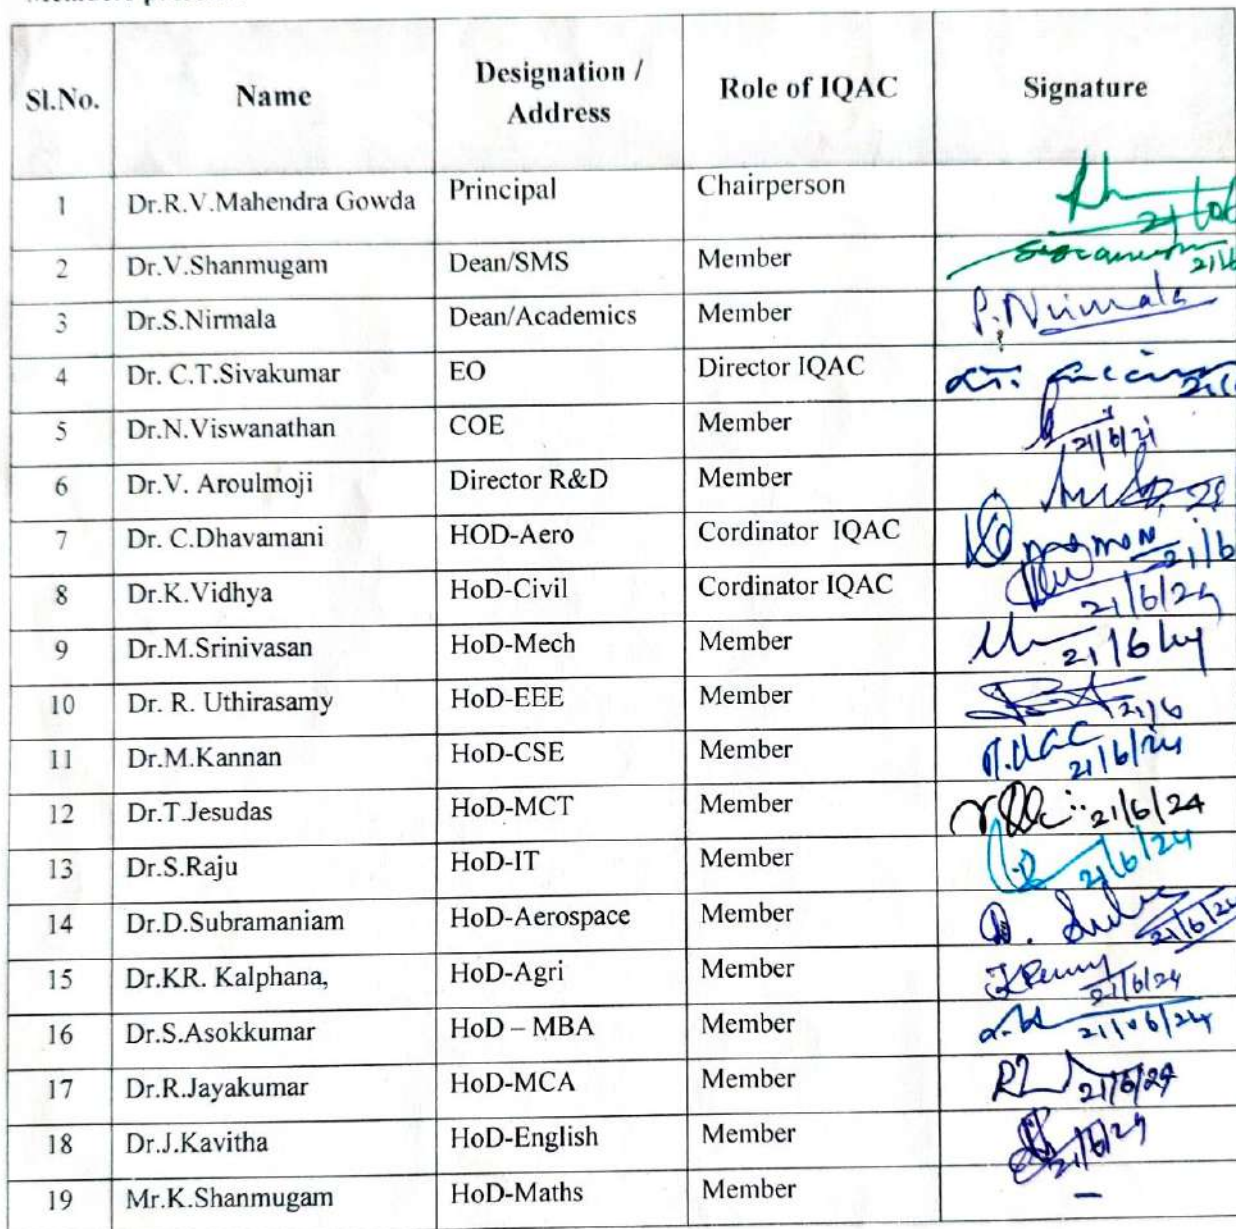 Sl.No. Name Designation / Address Role of IQAC Signature
1 Dr.R.V.Mahendra Gowda Principal Chairperson
2 Dr.V.Shanmugam Dean/SMS Member
3 Dr.S.Nirmala Dean/Academics Member P.Nirmala
4 Dr. C.T.Sivakumar EO Director IQAC
5 Dr.N.Viswanathan COE Member
6 Dr.V. Aroulmoji Director R&D Member
7 Dr. C.Dhavamani HOD-Aero Cordinator IQAC
8 Dr.K.Vidhya HoD-Civil Cordinator IQAC 21/6/24
9 Dr.M.Srinivasan HoD-Mech Member 21/6/24
10 Dr. R. Uthirasamy HoD-EEE Member 21/6
11 Dr.M.Kannan HoD-CSE Member 21/6/24
12 Dr.T.Jesudas HoD-MCT Member 21/6/24
13 Dr.S.Raju HoD-IT Member 21/6/24
14 Dr.D.Subramaniam HoD-Aerospace Member 21/6/24
15 Dr.KR. Kalphana, HoD-Agri Member 21/6/24
16 Dr.S.Asokkumar HoD – MBA Member 21/06/24
17 Dr.R.Jayakumar HoD-MCA Member 21/6/24
18 Dr.J.Kavitha HoD-English Member 21/6/24
19 Mr.K.Shanmugam HoD-Maths Member –